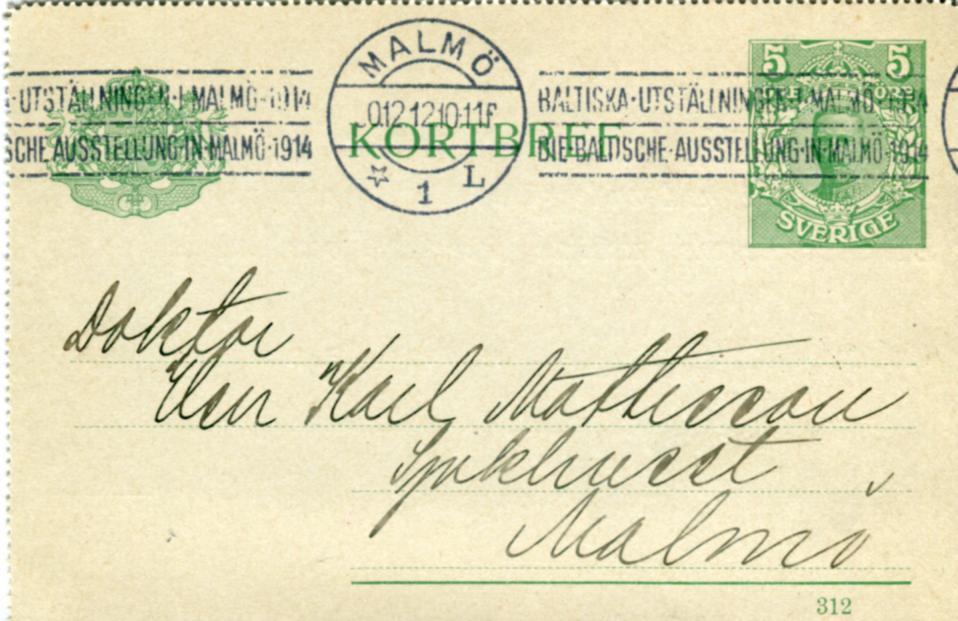 -UTSTÄLLNINGEN-I-MALMÖ-1914
SCHE AUSSTELLUNG-IN-MALMÖ-1914
MALMÖ
1 L
KORTBREF
BALTISKA-UTSTÄLLNINGEN-I-MALMÖ-1914
DIE-BALTISCHE-AUSSTELLUNG-IN-MALMÖ-1914
5 5
SVERIGE
Doktor
Herr Karl Matthesson
Malmö
312